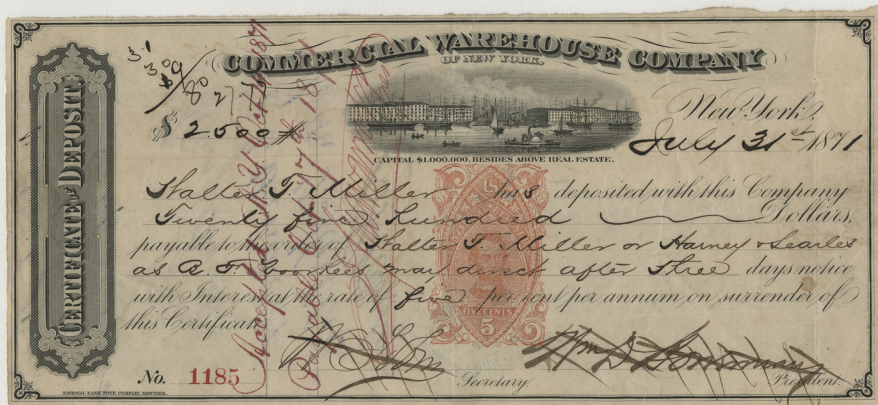 COMMERCIAL WAREHOUSE COMPANY
OF NEW YORK.
$2500
New York, July 31st 1871
CAPITAL $1,000,000, BESIDES ABOVE REAL ESTATE.
CERTIFICATE OF DEPOSIT
Walter T. Miller has deposited with this Company
Twenty five Hundred Dollars,
payable to the order of Walter T. Miller or Harney & Searles
as A. F. Voorhees may direct after Three days notice
with Interest at the rate of five per cent per annum on surrender of
this Certificate
FIVE CENTS
5
No. 1185
Secretary.
President.
NATIONAL BANK NOTE COMPANY, NEW YORK.